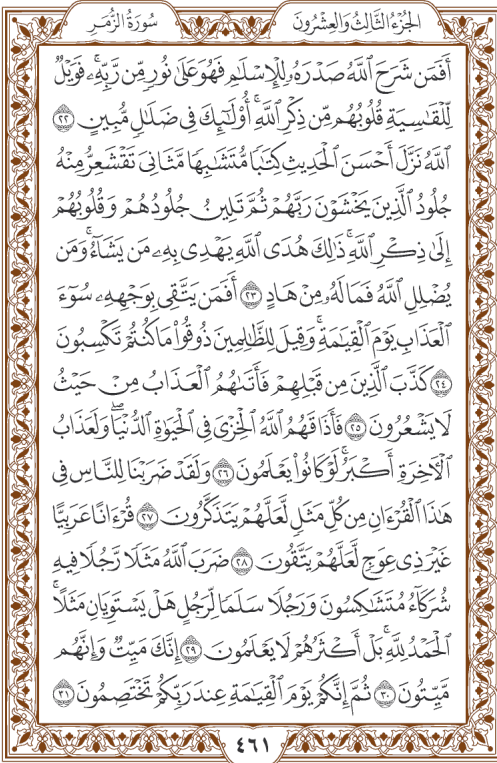 الجزء الثالث والعشرون سورة الزمر
أَفَمَن شَرَحَ ٱللَّهُ صَدْرَهُۥ لِلْإِسْلَٰمِ فَهُوَ عَلَىٰ نُورٍ مِّن رَّبِّهِۦ ۚ فَوَيْلٌ
لِّلْقَٰسِيَةِ قُلُوبُهُم مِّن ذِكْرِ ٱللَّهِ ۚ أُو۟لَٰٓئِكَ فِى ضَلَٰلٍ مُّبِينٍ ٢٢
ٱللَّهُ نَزَّلَ أَحْسَنَ ٱلْحَدِيثِ كِتَٰبًا مُّتَشَٰبِهًا مَّثَانِىَ تَقْشَعِرُّ مِنْهُ
جُلُودُ ٱلَّذِينَ يَخْشَوْنَ رَبَّهُمْ ثُمَّ تَلِينُ جُلُودُهُمْ وَقُلُوبُهُمْ
إِلَىٰ ذِكْرِ ٱللَّهِ ۚ ذَٰلِكَ هُدَى ٱللَّهِ يَهْدِى بِهِۦ مَن يَشَآءُ ۚ وَمَن
يُضْلِلِ ٱللَّهُ فَمَا لَهُۥ مِنْ هَادٍ ٢٣ أَفَمَن يَتَّقِى بِوَجْهِهِۦ سُوٓءَ
ٱلْعَذَابِ يَوْمَ ٱلْقِيَٰمَةِ ۚ وَقِيلَ لِلظَّٰلِمِينَ ذُوقُوا۟ مَا كُنتُمْ تَكْسِبُونَ
٢٤ كَذَّبَ ٱلَّذِينَ مِن قَبْلِهِمْ فَأَتَىٰهُمُ ٱلْعَذَابُ مِنْ حَيْثُ
لَا يَشْعُرُونَ ٢٥ فَأَذَاقَهُمُ ٱللَّهُ ٱلْخِزْىَ فِى ٱلْحَيَوٰةِ ٱلدُّنْيَا ۖ وَلَعَذَابُ
ٱلْءَاخِرَةِ أَكْبَرُ ۚ لَوْ كَانُوا۟ يَعْلَمُونَ ٢٦ وَلَقَدْ ضَرَبْنَا لِلنَّاسِ فِى
هَٰذَا ٱلْقُرْءَانِ مِن كُلِّ مَثَلٍ لَّعَلَّهُمْ يَتَذَكَّرُونَ ٢٧ قُرْءَانًا عَرَبِيًّا
غَيْرَ ذِى عِوَجٍ لَّعَلَّهُمْ يَتَّقُونَ ٢٨ ضَرَبَ ٱللَّهُ مَثَلًا رَّجُلًا فِيهِ
شُرَكَآءُ مُتَشَٰكِسُونَ وَرَجُلًا سَلَمًا لِّرَجُلٍ هَلْ يَسْتَوِيَانِ مَثَلًا ۚ
ٱلْحَمْدُ لِلَّهِ ۚ بَلْ أَكْثَرُهُمْ لَا يَعْلَمُونَ ٢٩ إِنَّكَ مَيِّتٌ وَإِنَّهُم
مَّيِّتُونَ ٣٠ ثُمَّ إِنَّكُمْ يَوْمَ ٱلْقِيَٰمَةِ عِندَ رَبِّكُمْ تَخْتَصِمُونَ ٣١
٤٦١